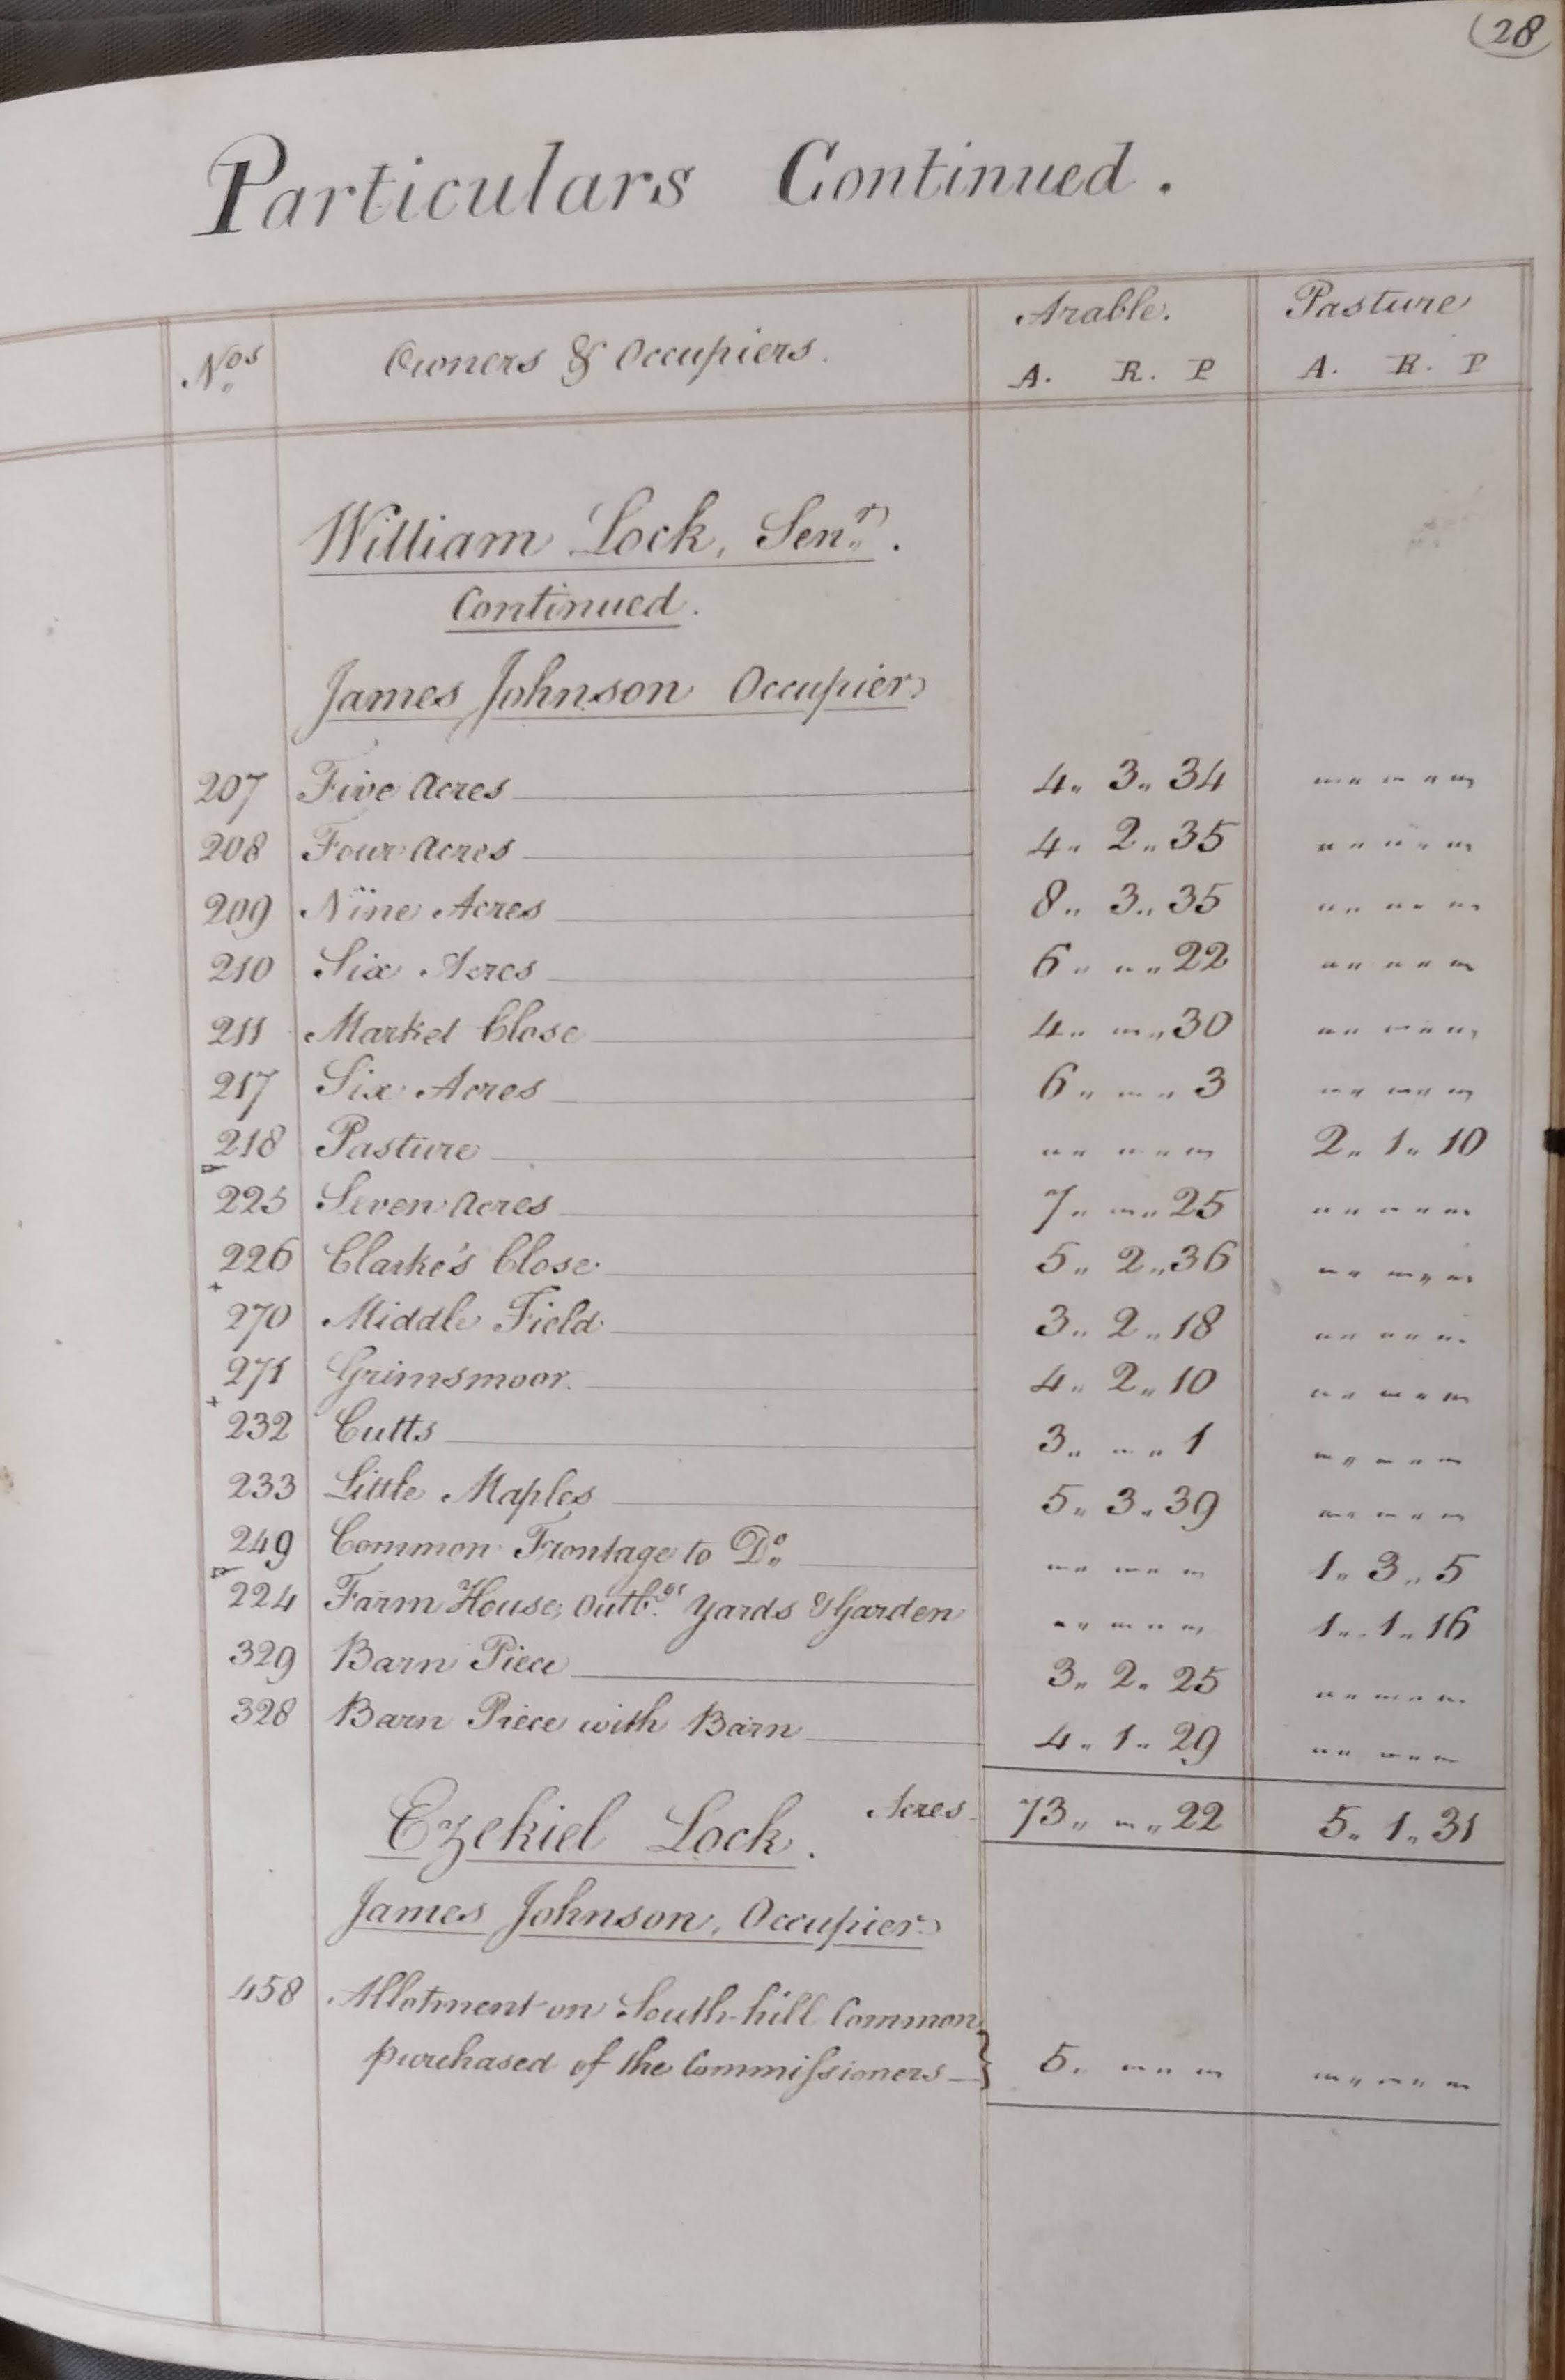 (28
Particulars Continued.
Nos Owners & Occupiers. Arable. Pasture
A. R. P A. R. P
William Lock, Senr.
Continued.
James Johnson Occupier
207 Five Acres 4 " 3 " 34 " " "
208 Four Acres 4 " 2 " 35 " " "
209 Nine Acres 8 " 3 " 35 " " "
210 Six Acres 6 " " " 22 " " "
211 Market Close 4 " " " 30 " " "
217 Six Acres 6 " " " 3 " " "
218 Pasture " " " 2 " 1 " 10
225 Seven Acres 7 " " " 25 " " "
226 Clarke's Close 5 " 2 " 36 " " "
+
270 Middle Field 3 " 2 " 18 " " "
271 Grimsmoor. 4 " 2 " 10 " " "
+
232 Cutts 3 " " " 1 " " "
233 Little Maples 5 " 3 " 39 " " "
249 Common Frontage to Do " " " 1 " 3 " 5
224 Farm House, Outbgs Yards & Garden " " " 1 " 1 " 16
329 Barn Piece 3 " 2 " 25 " " "
328 Barn Piece with Barn 4 " 1 " 29 " " "
Acres 73 " " " 22 5 " 1 " 31
Ezekiel Lock.
James Johnson, Occupier
458 Allotment on South-hill Common
purchased of the Commissioners 5 " " " " " "